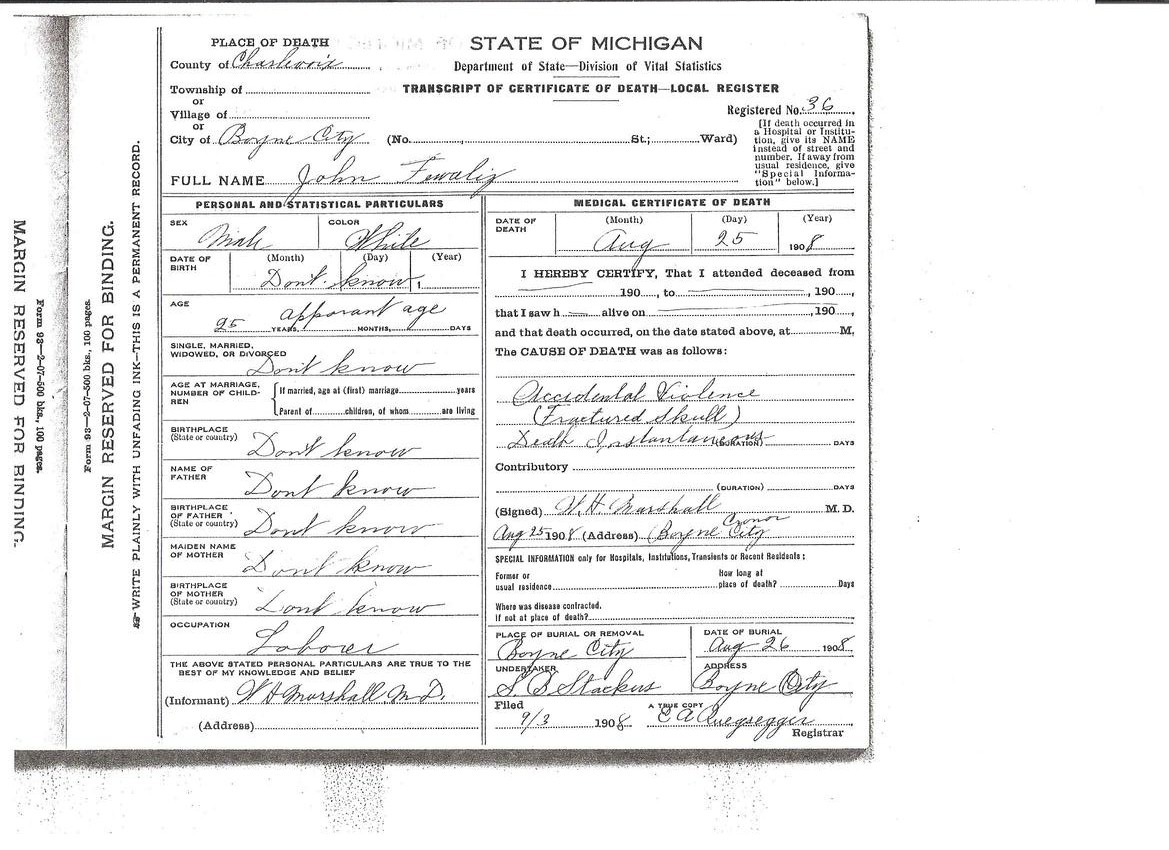 PLACE OF DEATH
County of Charlevoix
Township of
or
Village of
or
City of Boyne City
STATE OF MICHIGAN
Department of State—Division of Vital Statistics
TRANSCRIPT OF CERTIFICATE OF DEATH—LOCAL REGISTER
Registered No. 36
(No. St.; Ward)
[If death occurred in a Hospital or Institution, give its NAME instead of street and number. If away from usual residence, give "Special Information" below.]
FULL NAME John
PERSONAL AND STATISTICAL PARTICULARS
SEX Male
COLOR White
DATE OF BIRTH (Month) (Day) (Year)
Don't know 1
AGE apparant age
25 YEARS, MONTHS, DAYS
SINGLE, MARRIED, WIDOWED, OR DIVORCED
Don't know
AGE AT MARRIAGE, NUMBER OF CHILDREN
If married, age at (first) marriage years
Parent of children, of whom are living
BIRTHPLACE (State or country) Don't know
NAME OF FATHER Dont know
BIRTHPLACE OF FATHER (State or country) Dont know
MAIDEN NAME OF MOTHER Dont know
BIRTHPLACE OF MOTHER (State or country) Dont know
OCCUPATION
Laborer
THE ABOVE STATED PERSONAL PARTICULARS ARE TRUE TO THE BEST OF MY KNOWLEDGE AND BELIEF
(Informant) W H Marshall, M D.
(Address)
MEDICAL CERTIFICATE OF DEATH
DATE OF DEATH (Month) (Day) (Year)
Aug 25 1908
I HEREBY CERTIFY, That I attended deceased from
190 , to , 190 ,
that I saw h alive on , 190 ,
and that death occurred, on the date stated above, at M.
The CAUSE OF DEATH was as follows:
Accidental Violence
(Fractured Skull)
Death Instantaneous (DURATION) DAYS
Contributory
(DURATION) DAYS
(Signed) W. H. Marshall M. D.
Aug 25 1908 (Address) Boyne City
SPECIAL INFORMATION only for Hospitals, Institutions, Transients or Recent Residents:
Former or usual residence
How long at place of death? Days
Where was disease contracted, if not at place of death?
PLACE OF BURIAL OR REMOVAL
Boyne City
DATE OF BURIAL
Aug 26 1908
UNDERTAKER
S B Stackus
ADDRESS
Boyne City
Filed
9/3 1908
A TRUE COPY
Registrar
WRITE PLAINLY WITH UNFADING INK—THIS IS A PERMANENT RECORD.
MARGIN RESERVED FOR BINDING.
Form 93—2-07-500 bks., 100 pages.
Form 93—2-07-500 bks., 100 pages.
MARGIN RESERVED FOR BINDING.